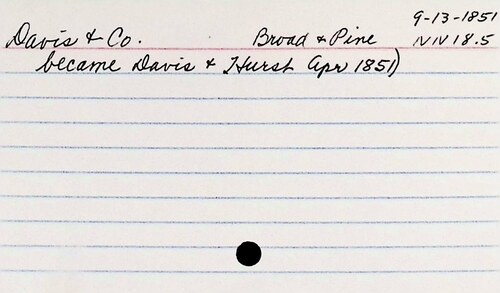 9-13-1851
Davis & Co. Broad & Pine NN 18.5
became Davis & Hurst Apr 1851)